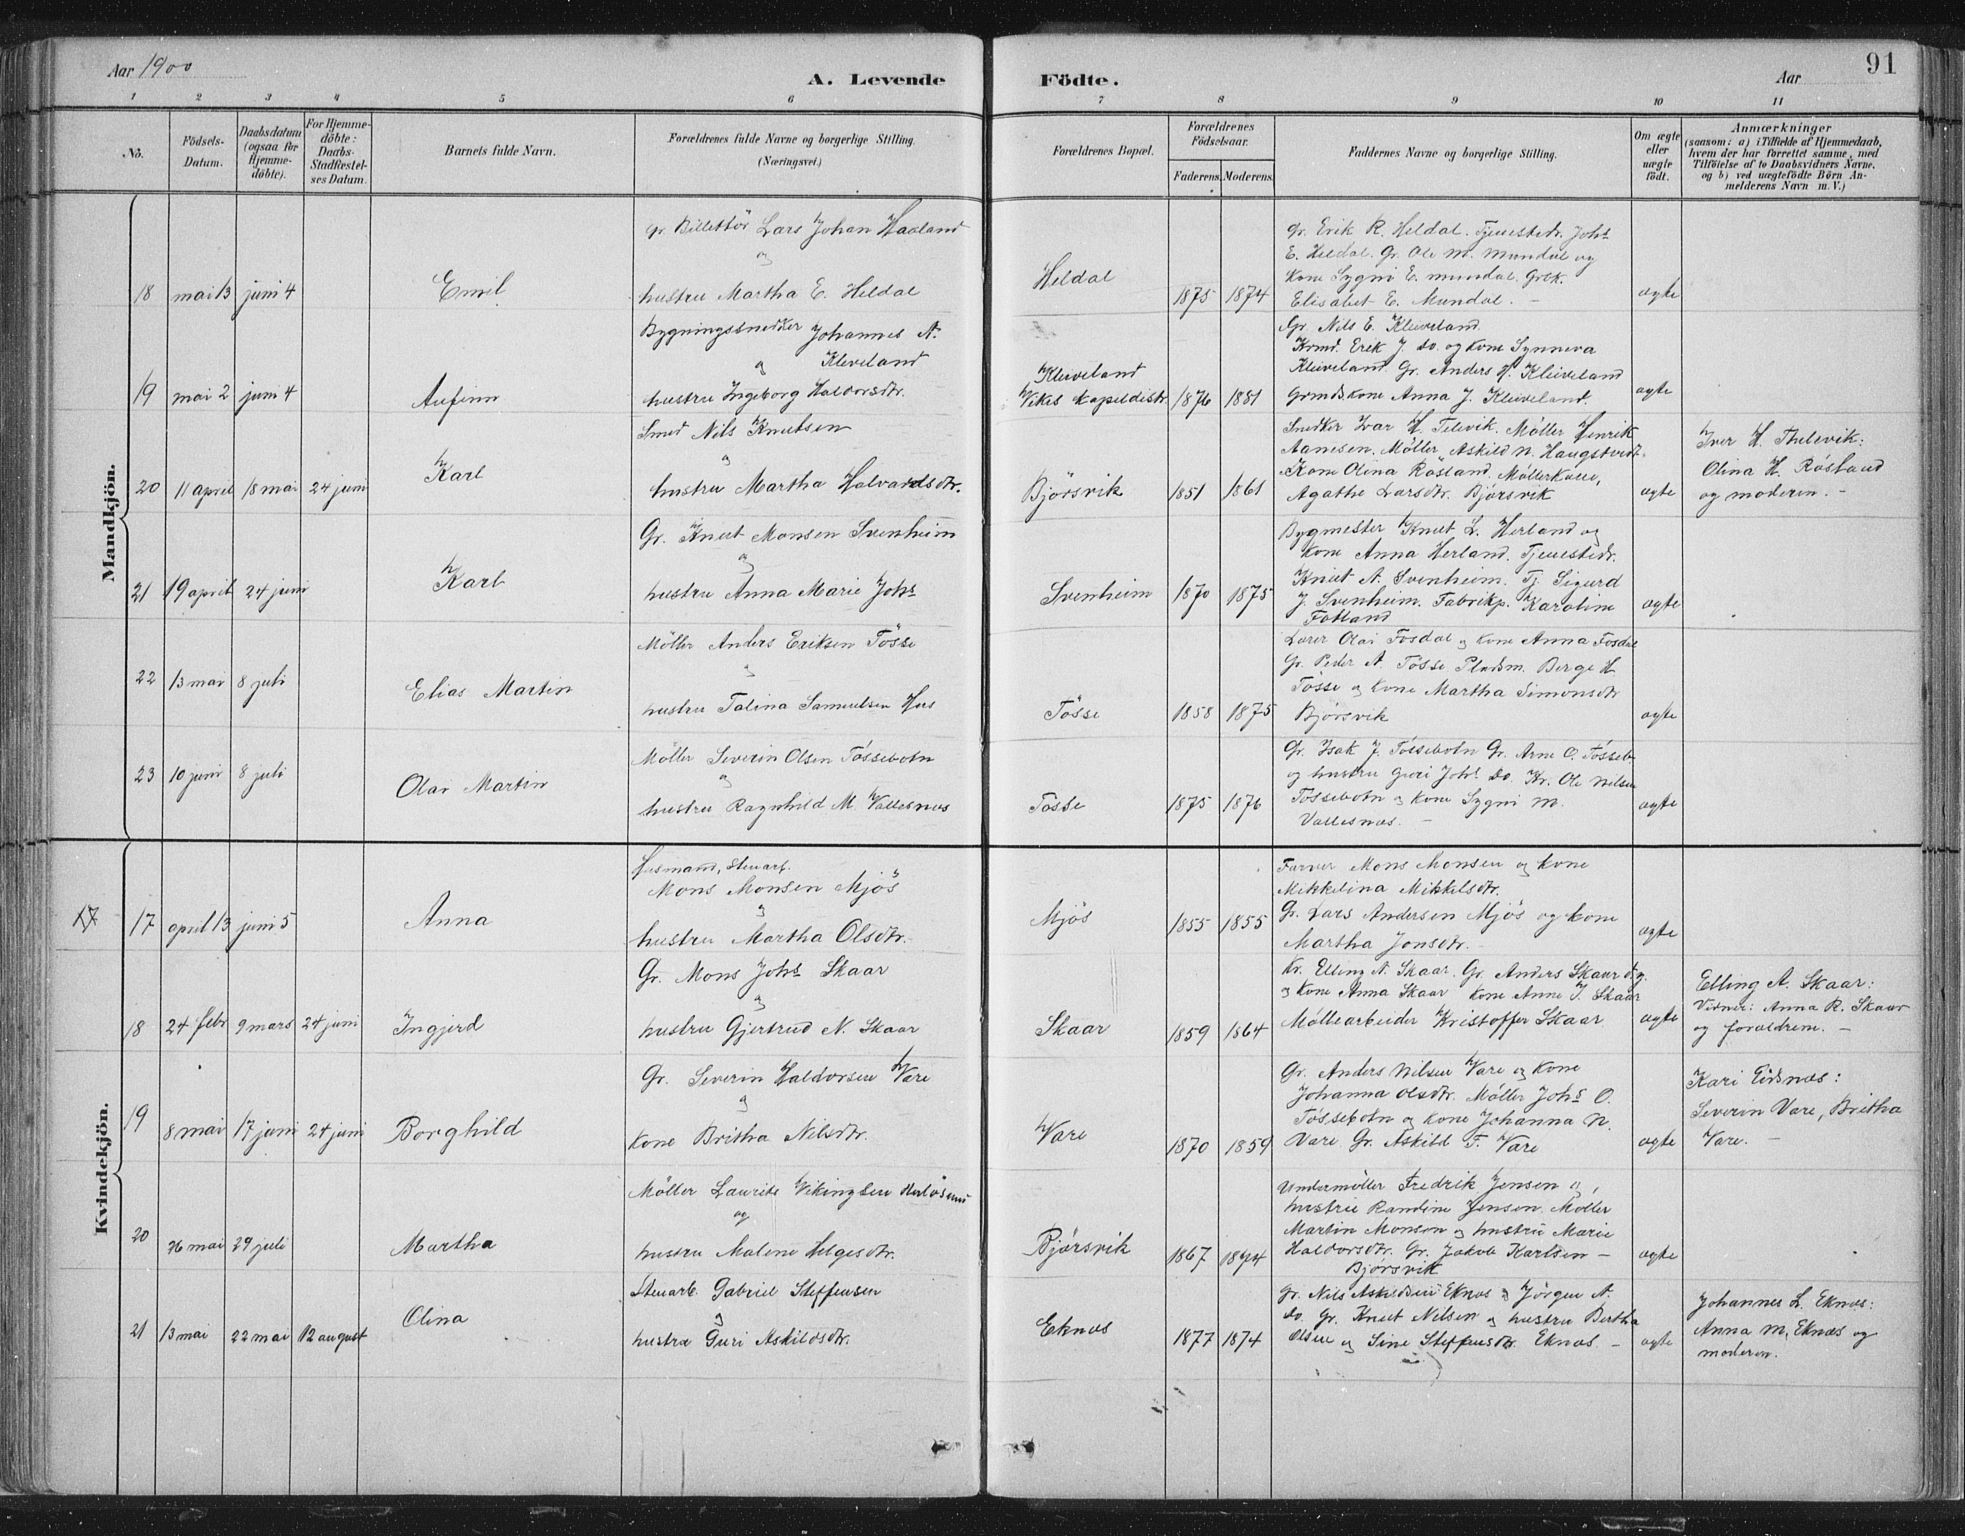 Aar 1900
A. Levende
1 2 3 4 5 6
No.
Födsels-
Datum.
Daabsdatum
(ogsaa for
Hjemme-
döbte).
For Hjemme-
döbte:
Daabs-
Stadfæstel-
ses Datum.
Barnets fulde Navn.
Forældrenes fulde Navne og borgerlige Stilling.
(Næringsvei.)
Mandkjön.
gr. Billettör Lars Johan Haaland
og
18 mai 13 juni 4 Emil hustru Martha E. Heldal
Bygningssnedker Johannes A.
Kleveland
og
19 mai 2 juni 4 Anfinn hustru Ingeborg Haldorsdtr.
Smed Nils Knutsen
og
20 11 april 18 mai 24 juni Karl hustru Martha Halvardsdtr.
Gr. Knut Monsen Svenheim
og
21 19 april 24 juni Karl hustru Anna Marie Johs
Möller Anders Eriksen Tösse
22 13 mai 8 juli Elias Martin
hustru Talina Samuelsen Hus
Möller Severin Olsen Tössebotn
og
23 10 juni 8 juli Olai Martin
hustru Ragnhild M. Vallesnæs
Kvindekjön.
Husmand, Stenarb.
Mons Monsen Mjös
og
17 17 april 13 juni 5 Anna hustru Martha Olsdtr.
Gr. Mons Johs Skaar
og
18 24 febr 9 mars 24 juni Ingjerd hustru Gjertrud N. Skaar
Gr. Severin Haldorsen Vare
og
19 8 mai 17 juni 24 juni Borghild Kone Britha Nilsdtr.
Möller Laurits Vikingsen
og
20 26 mai 29 juli Martha hustru Malene Helgesdtr.
Stenarb. Gabriel Steffensen
og
21 13 mai 22 mai 12 august Olina hustru Guri Askildsdtr.
Födte.
Aar
91
7 8 9 10 11
Forældrenes Bopæl.
Forældrenes
Födselsaar.
Faderens. Moderens.
Faddernes Navne og borgerlige Stilling.
Om ægte
eller
uægte
födt.
Anmærkninger
(saasom: a) i Tilfælde af Hjemmedaab,
hvem der har forrettet samme, med
Tilföielse af to Daabsvidners Navne,
og b) ved uægtefödte Börn An-
melderens Navn m. V.)
gr. Erik R. Heldal. Tjenestedr. Johs
E. Heldal. Gr. Ole M. Mundal og
Kone Sygni E. Mundal. Grek.
Heldal 1875 1874 Elisabet E. Mundal. – ægte
Gr. Nils E. Kleiveland.
Krmd. Erik J. do. og Kone Synneva
Kleiveland. Gr. Anders H. Kleiveland
Kleiveland
Vikes kapeldistr 1876 1881 Grmdskone Anna J. Kleiveland. ægte
Snedker Ivar H. Televik. Möller Henrik
Aanesen. Möller Askild N. Haugstvedt.
Kone Olina Rösland. Möllerkone,
Björsvik 1851 1861 Agathe Larsdtr. Björsvik ægte
Iver H. Thelevik:
Olina H. Rösland
og moderen. –
Bygmester Knut L. Herland og
Kone Anna Herland. Tjenestedr.
Knut A. Svenheim. Tj. Sigurd
Svenheim 1870 1875 J. Svenheim. Fabrikp. Karoline ægte
Fotland
Lærer Olai Fosdal og Kone Anna Fosdal
Gr. Peder A. Tösse Pladsm. Berge H.
Tösse og Kone Martha Simonsdtr
Tösse 1858 1875 Björsvik ægte
Gr. Isak J. Tössebotn Gr. Arne O. Tösseb.
og hustru Guri Johs do. Kr. Ole Nilsen
Tösse 1875 1876 Tössebotn og Kone Sygni M. ægte
Vallesnæs. –
Farver Mons Monsen og Kone
Mikkelina Mikkelsdtr.
Gr. Lars Andersen Mjös og Kone
Mjös 1855 1855 Martha Jonsdtr. – ægte
Kr. Elling A. Skaar. Gr. Anders Skaar d.y.
og Kone Anna Skaar Kone Anne J. Skaar
Skaar 1859 1864 Möllearbeider Kristoffer Skaar ægte
Elling A. Skaar:
Vidner: Anna R. Skaar
og forældrene. –
Gr. Anders Nilsen Vare og Kone
Johanna Olsdtr. Möller Johs O.
Tössebotn og Kone Johanna N.
Vare 1870 1859 Vare. Gr. Askild F. Vare ægte
Kari Eidsnæs:
Severin Vare, Britha
Vare. –
Undermöller Fredrik Jensen og
hustru Randine Jensen. Möller
Martin Monsen og hustru Marie
Björsvik 1867 1894 Haldorsdtr. Gr. Jakob Karlsen – ægte
Björsvik
Gr. Nils Askildsen Eknæs og Jörgen A.
do. Gr. Knut Nilsen og hustru Bertha
Eknæs 1877 1874 Olsen og Sine Steffensdtr. Eknæs. – ægte
Johannes L. Eknæs:
Anna M. Eknæs og
moderen.